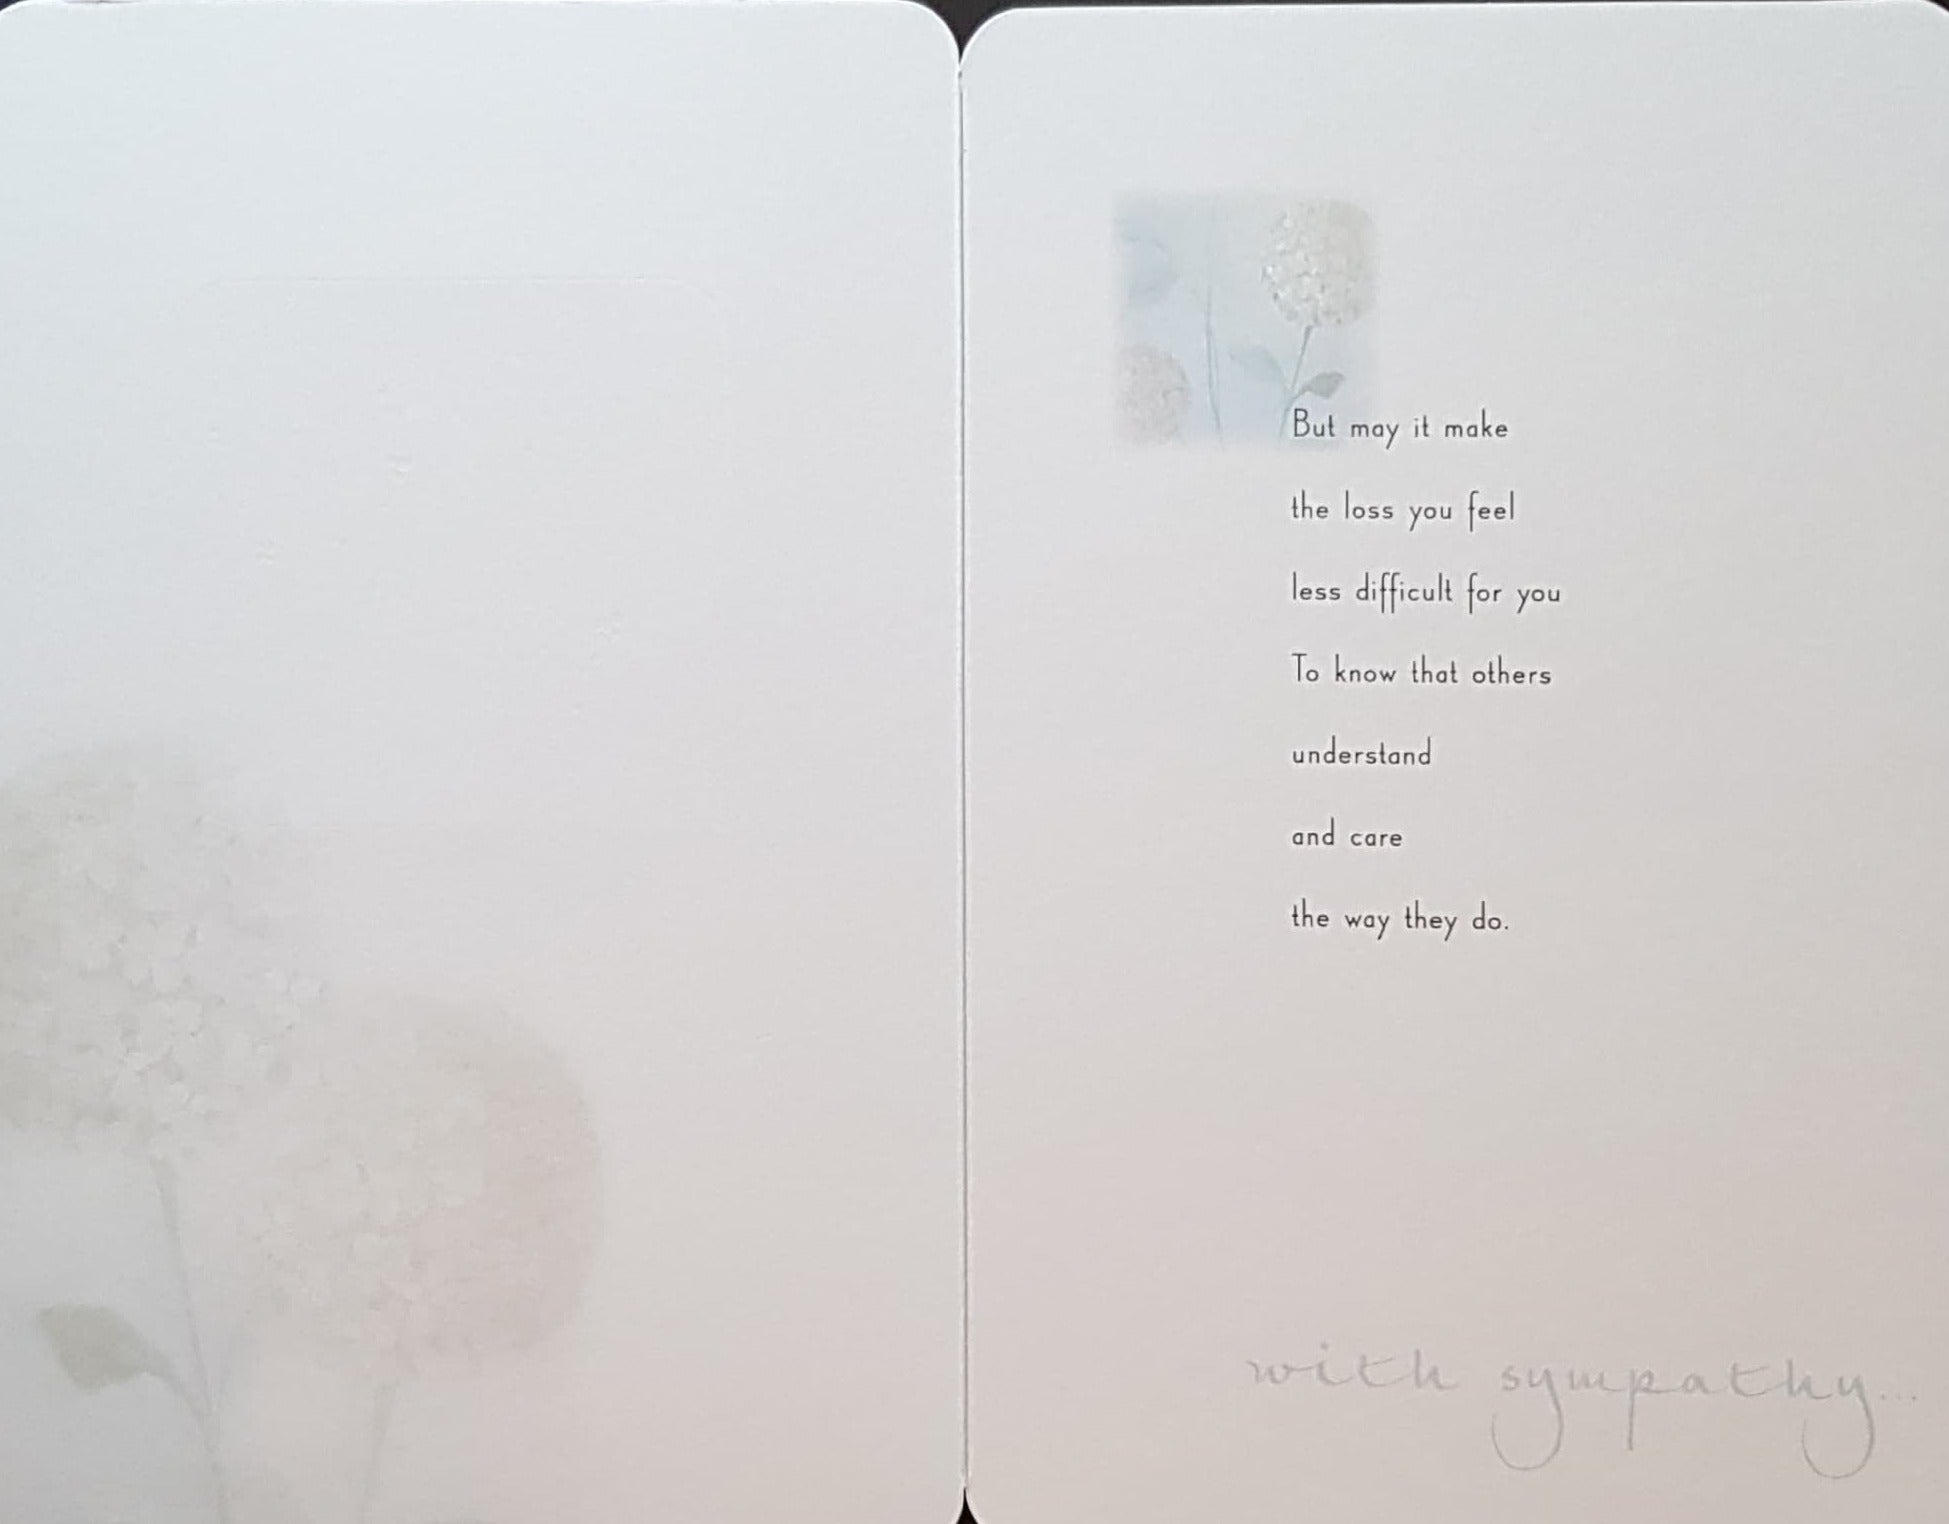 But may it make
the loss you feel
less difficult for you
To know that others
understand
and care
the way they do.
with sympathy...